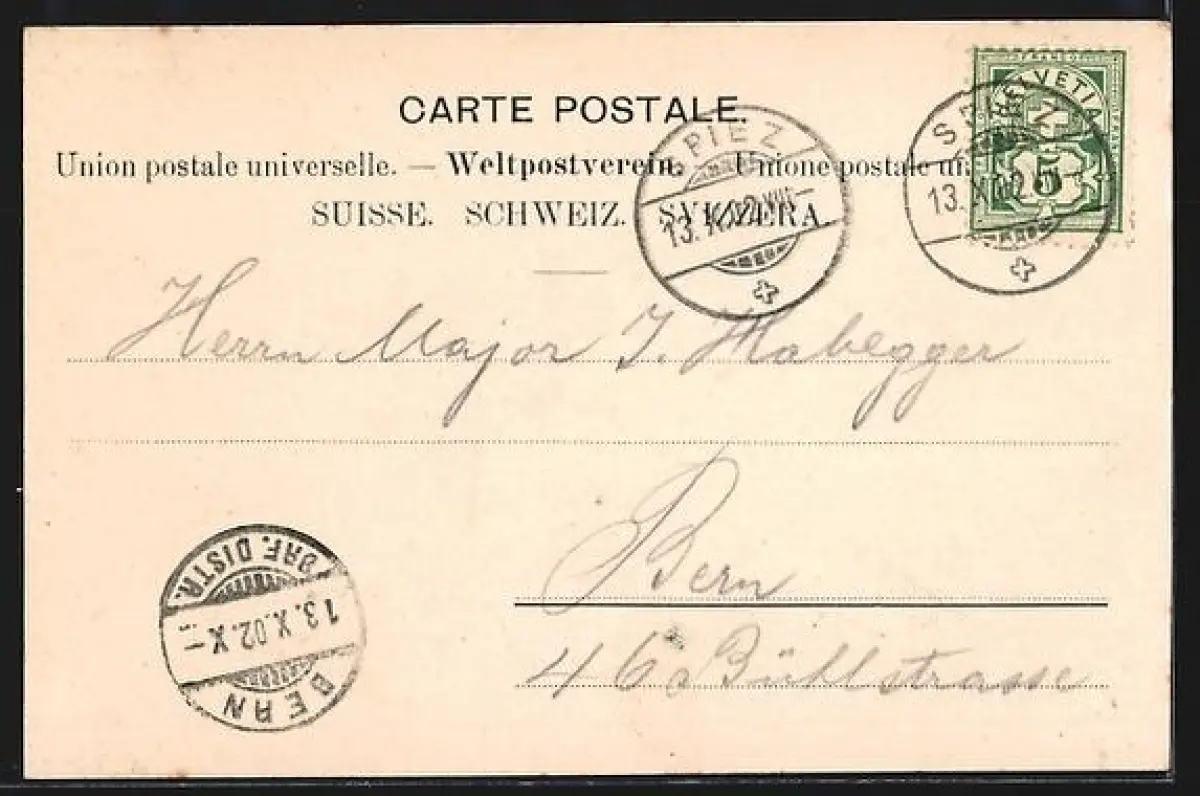 CARTE POSTALE.
Union postale universelle. — Weltpostverein. — Unione postale un
SUISSE. SCHWEIZ. SVIZZERA.
HELVETIA
5
SPIEZ
13. X. 02. VIII
SPIEZ
13. X. 02.
Herrn Major J. Habegger
Bern
46 Bühlstrasse
BERN
13. X. 02. X
BRF. DISTR.